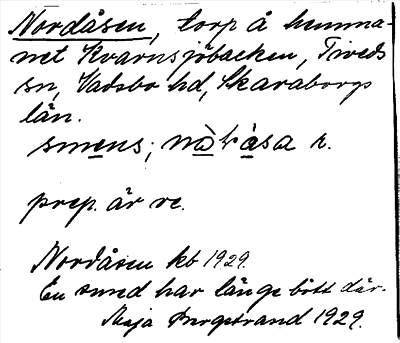 Nordåsen, torp å hemma-
net Kvarnsjöbacken, Tiveds
sn, Vadsbo hd, Skaraborgs
län.
smens; nàràsa r.
prep. är ve.
Nordåsen kb 1929.
En smed har länge bott där.
Maja Bergstrand 1929.